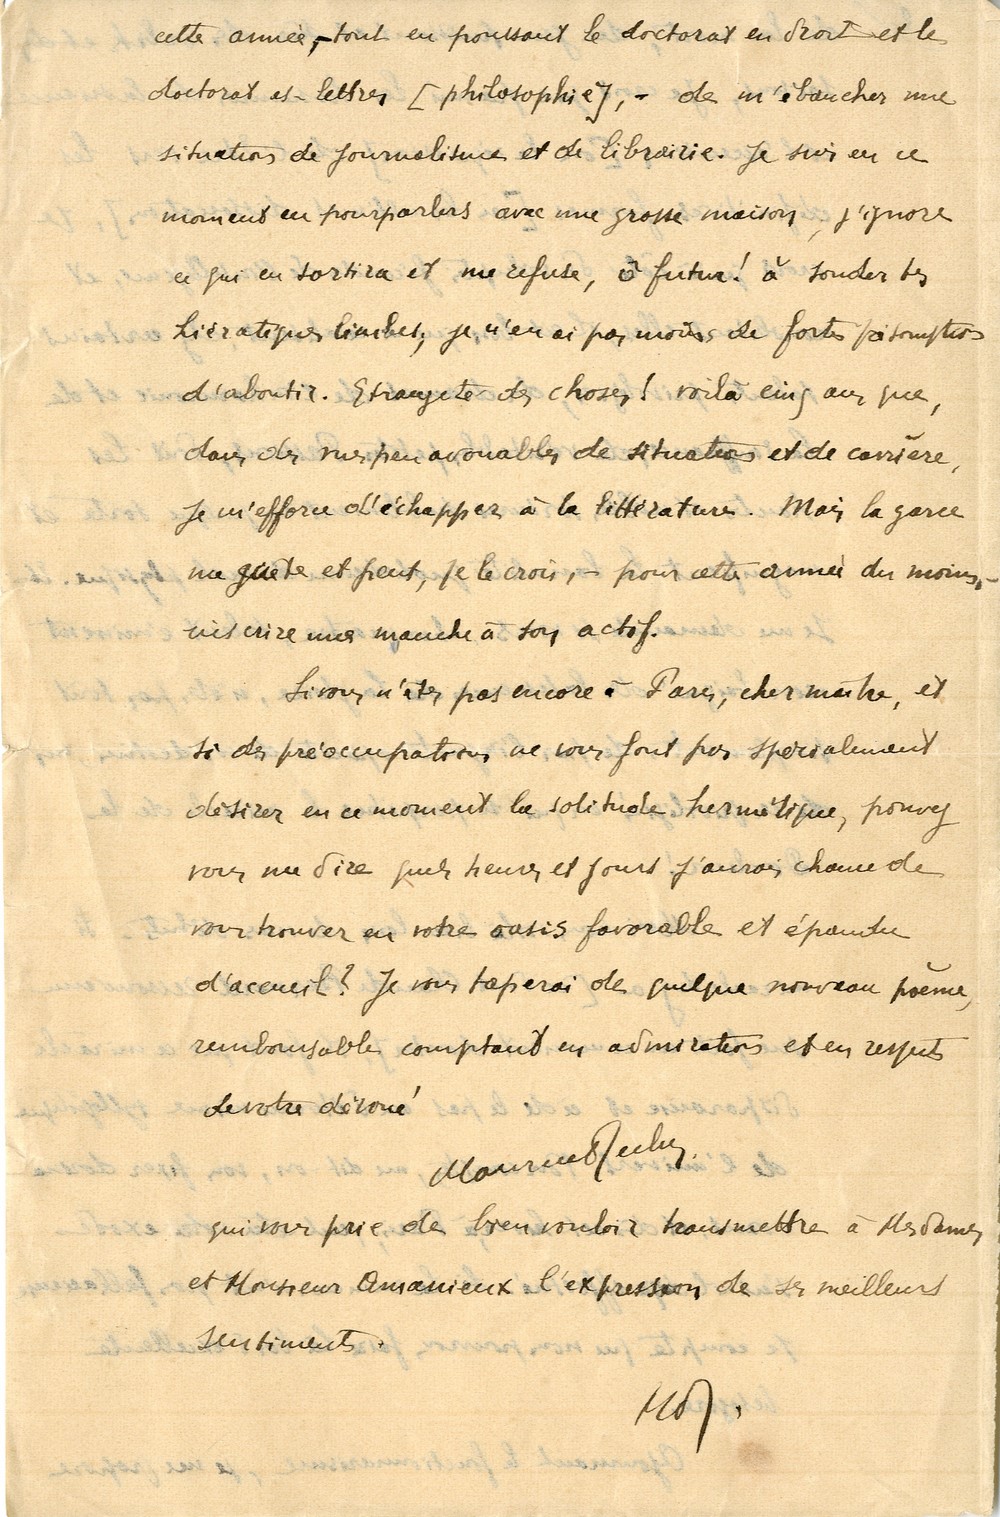 cette année, - tout en poussant le doctorat en droit et le
doctorat es-lettres [philosophie], - de m'ébaucher une
situation de journalisme et de librairie. Je suis en ce
moment en pourparlers avec une grosse maison, j'ignore
ce qui en sortira et me refuse, ô futur! à sonder tes
hiératiques limbes, je n'en ai pas moins de fortes présomptions
d'aboutir. Etrangeté des choses! voilà cinq ans que,
dans des vues peu avouables de situation et de carrière,
je m'efforce d'échapper à la littérature. Mais la garce
me guête et peut, je le crois, - pour cette année du moins, -
inscrire une manche à son actif.
Si vous n'êtes pas encore à Paris, cher maître, et
si des préoccupations ne vous font pas spécialement
désirer en ce moment la solitude hermétique, pouvez
vous me dire quels heures et jours j'aurais chance de
vous trouver en votre oasis favorable et épandu
d'acceuil? Je vous taperai de quelque nouveau poème,
remboursable comptant en admiration et en respects
de votre dévoué
qui vous prie de bien vouloir transmettre à Mesdames
et Monsieur Amanieux l'expression de ses meilleurs
sentiments.